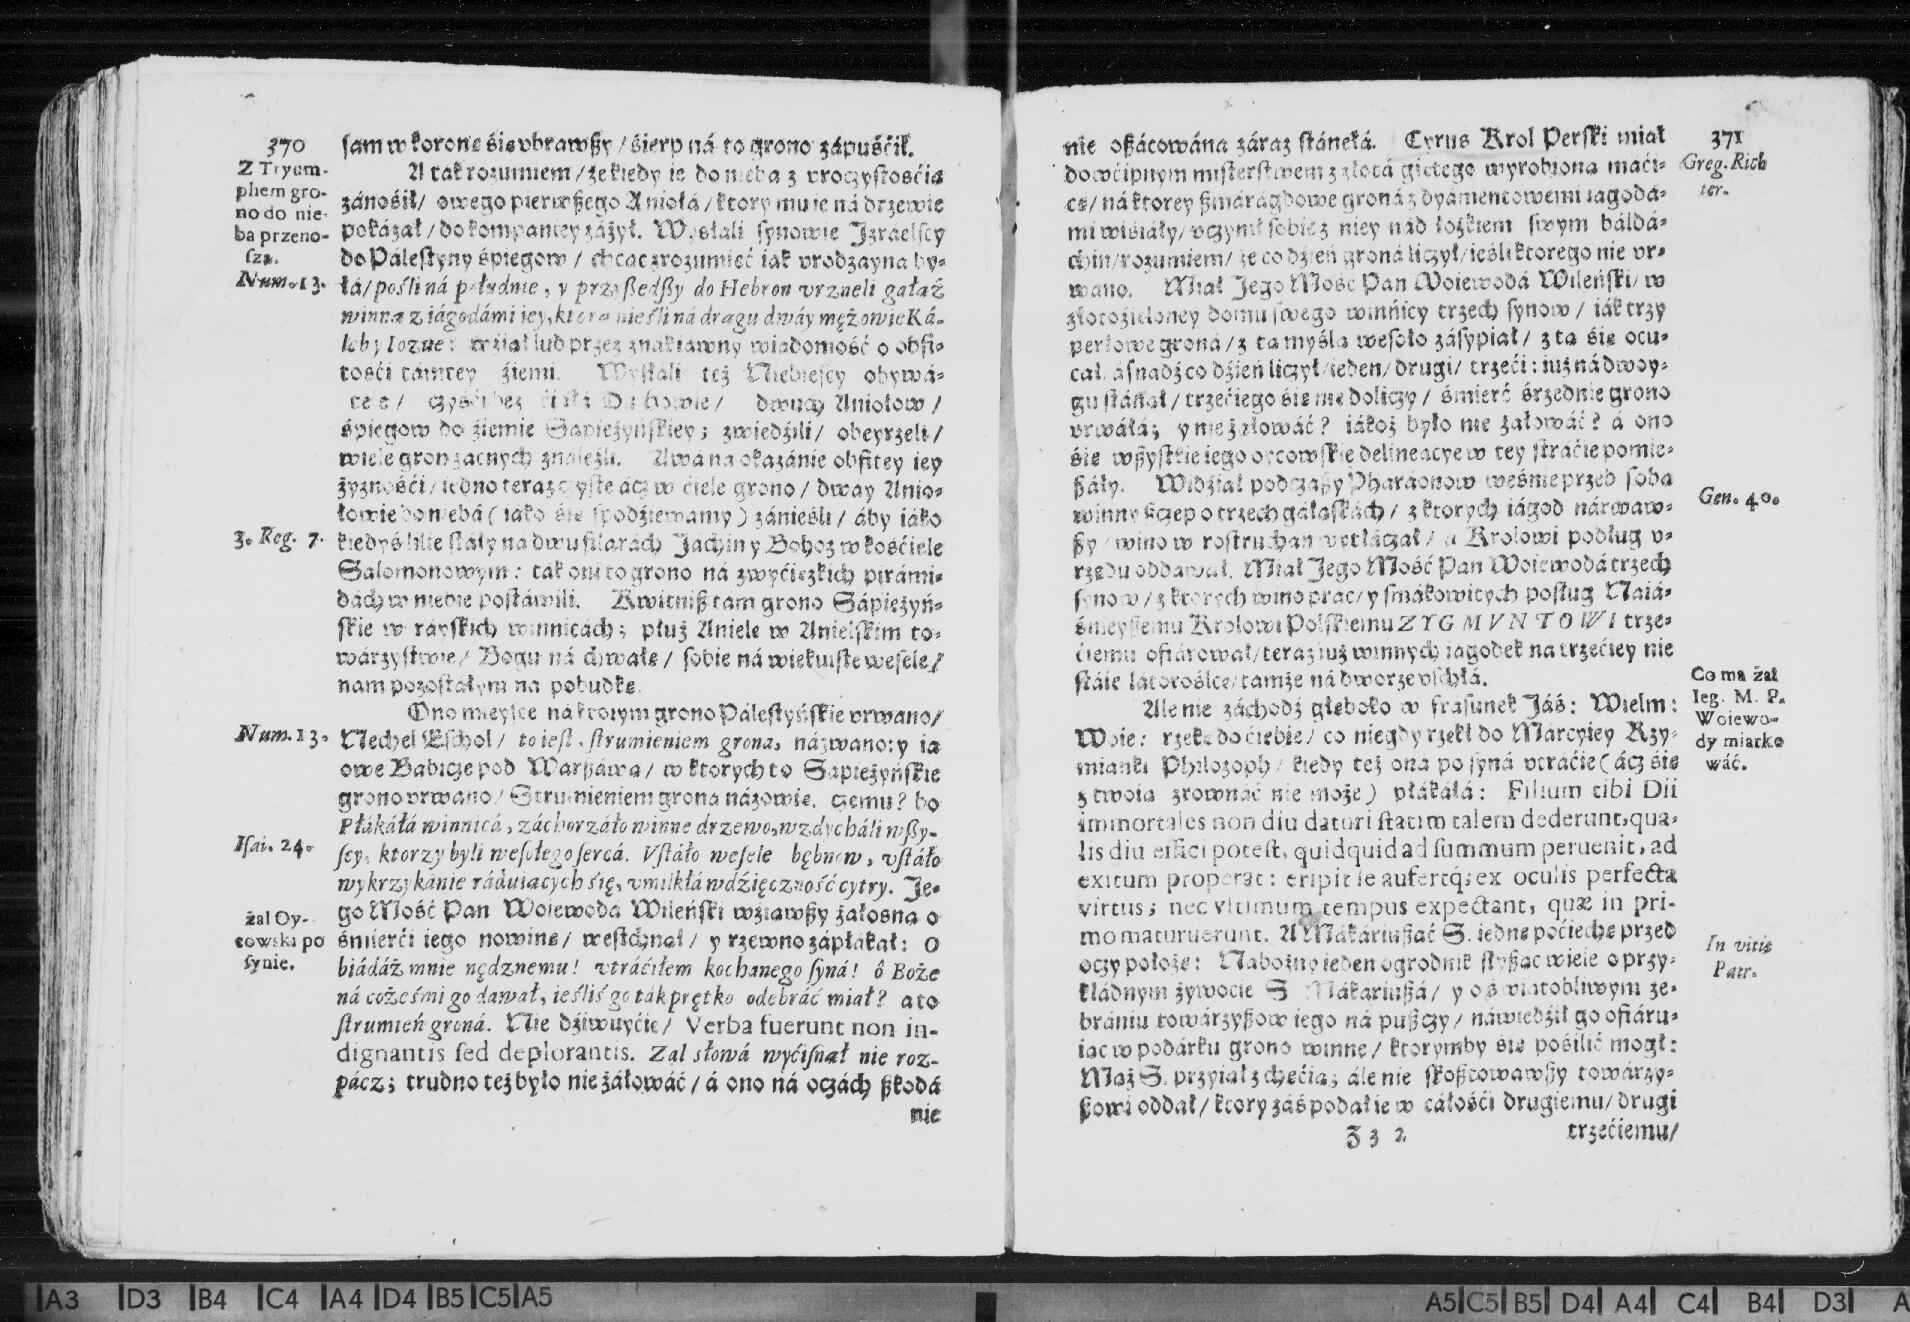 370
sam w koronę się vbrawßy / śierp ná to grono zápuśćił.
Z Tryum-
phem gro-
no do nie-
ba przeno-
szą.
A tak rozumiem / że kiedy ie do nieba z vroczystośćią
zánośił / owego pierwßego Aniołá / ktory mu ie ná drzewie
pokázał / do kompániey záżył. Wysłali synowie Izráelscy
do Pálestyny śpiegow / chcąc zrozumieć iak vrodzayna by-
Num. 13.
łá / pośli ná południe, y przyßedßy do Hebron vrzneli gałąź
winną z iágodámi iey, ktorą nieśli ná drągu dwáy mężowie Ká-
leb y Iozue: wźiął lud przez znak iáwny wiádomość o obfi-
tośći támtey źiemi. Wysłali też Niebiescy obywá-
tele / czyśći bez ćiałá Duchowie / dwuch Aniołow /
śpiegow do źiemie Sapieżyńskiey; zwiedźili / obeyrzeli /
wiele gron zacnych ználeźli. A wa na okazánie obfitey iey
żyznośći / iedno teraz czyste ácz w ćiele grono / dway Anio-
łowie do niebá (iáko się spodźiewamy) zánieśli / áby iáko
3. Reg. 7.
kiedyś lilie stały na dwu filarách Jachin y Bohoz w kośćiele
Salomonowym: tak oni to grono ná zwyćięzkich pirámi-
dách w niebie postáwili. Kwitniß tam grono Sápieżyń-
skie w rayskich winnicách; płuż Aniele w Anielskim to-
wárzystwie / Bogu ná chwałę / sobie ná wiekuiste wesele /
nam pozostałym na pobudkę.
Ono mieysce na ktorym grono Pálestyńskie vrwano /
Num. 13.
Nechel Eschol / to iest, strumieniem groná, názwano: y ia
owe Babicze pod Warßáwą / w ktorych to Sapieżyńskie
grono vrwano / Strumieniem groná názowię. czemu? bo
Płákáłá winnicá, záchorzáło winne drzewo, wzdycháli wßy-
Isai. 24.
scy, ktorzy byli wesołego sercá. Vstáło wesele bębnow, vstáło
wykrzykánie ráduiących się, vmilkłá wdźięczność cytry. Je-
żal Oy-
cowski po
synie.
go Mość Pan Woiewodá Wileński wźiąwßy żałosną o
śmierći iego nowinę / westchnął / y rzewno zápłákał: O
biádáż mnie nędznemu! vtráćiłem kochanego syná! ô Boże
ná cożeśmi go dawał, ieśliś go ták prętko odebráć miał? a to
strumień groná. Nie dźiwuyćie / Verba fuerunt non in-
dignantis sed deplorantis. Zal słowá wyćisnął nie roz-
pácz; trudno też było nie żáłowáć / á ono ná oczách ßkodá
nie
371
nie oßácowána záraz stánełá. Cyrus Krol Perski miał
Greg. Rich
ter.
dowćipnym misterstwem z złotá giętego wyrobioną máći-
cę / ná ktorey ßmárágdowe groná z dyámentowemi iagodá-
mi wiśiáły / vczynił sobie z niey nád łożkiem swym báldá-
chin / rozumiem / że co dźień groná liczył / ieśli ktorego nie vr-
wano. Miał Jego Mość Pan Woiewodá Wileński / w
złotoźieloney domu swego winńicy trzech synow / iák trzy
perłowe groná / z tą myślą wesoło zásypiał / z tą się ocu-
cał, á snadź co dźień liczył / ieden / drugi / trzeći: iuż ná dwoy-
gu stánął / trzećiego się nie doliczy / śmierć śrzednie grono
vrwáłá; y nie żáłowáć? iákoż było nie żáłowáć? á ono
się wßystkie iego oycowskie delineacye w tey stráćie pomie-
ßáły. Widźiał podczáßy Pharáonow we śnie przed sobą
Gen. 40.
winny ßczep o trzech gałąskách / z ktorych iágod nárwaw-
ßy / wino w rostruchan wytłáczał / á Krolowi podług v-
rzędu oddawał. Miał Jego Mość Pan Woiewodá trzech
synow / z ktorych wino prac / y smákowitych posług Naiá-
śnieyßemu Krolowi Polskiemu ZYGMVNTOWI trze-
ćiemu ofiárował / teraz iuż winnych iagodek na trzećiey nie
stáie látorośłce / tamże ná dworze vschłá.
Co ma żal
Ieg. M. P.
Woiewo-
dy miarko
wáć.
Ale nie záchodź głęboko w frásunek Jáś: Wielm:
Woie: rzekę do ćiebie / co niegdy rzekł do Márcyiey Rzy-
mianki Philozoph / kiedy też oná po syná vtráćie (ácz się
z twoią zrownáć nie może) płákáłá: Filium tibi Dii
immortales non diu daturi statim talem dederunt, qua-
lis diu effici potest, quidquid ad summum peruenit, ad
exitum properat: eripit se aufertq; ex oculis perfecta
virtus; nec vltimum tempus expectant, quæ in pri-
mo maturuerunt. A Mákáriußáć S. iednę poćiechę przed
In vitis
Patr.
oczy położę: Nabożny ieden ogrodnik słyßąc wiele o przy-
kłádnym żywoćie S. Mákáriußá / y o świątobliwym ze-
brániu towárzyßow iego ná pußczy / náwiedźił go ofiáru-
iąc w podárku grono winne / ktorymby się pośilić mogł:
Mąż S. przyiął z chęćią; ále nie skoßtowawßy towárzy-
ßowi oddał / ktory záś podał ie w cáłośći drugiemu / drugi
Zz 2
trzećiemu /